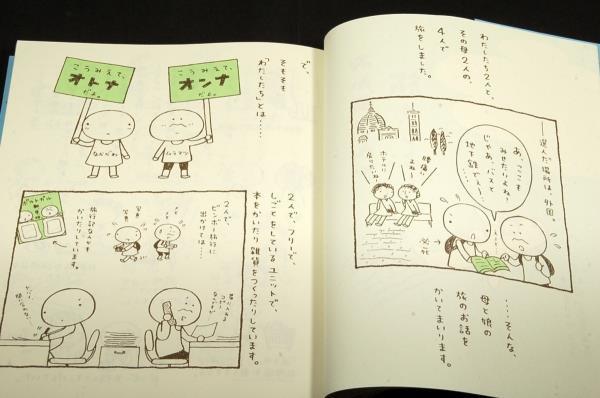 わたしたち2人と、
その母2人の、
4人で
旅をしました。
──選んだ場所は、外国。
あ、ここも
みせたいよね?
じゃあ、バスと
地下鉄で…
腰痛い
よねー
ホテルに
戻りたいね
必死
……そんな、
母と娘の
旅のお話を
かいてまいります。
で、
そもそも
「わたしたち」とは……
こうみえて、
オンナ
だよ。
こうみえて、
オトナ
だよ。
ムラマツ
なかがわ
2人で、フリーで、
しごとをしているユニットで、
本をかいたり雑貨をつくったりしています。
2人で、
ビンボー旅行に
出かけては……
写真
写真
旅行記なんかも
かいたりしています。
ポルトガル